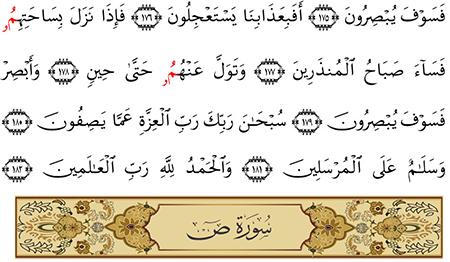 فَسَوْفَ يُبْصِرُونَ ﴿١٧٥﴾ أَفَبِعَذَابِنَا يَسْتَعْجِلُونَ ﴿١٧٦﴾ فَإِذَا نَزَلَ بِسَاحَتِهِمُۥ
فَسَآءَ صَبَاحُ ٱلْمُنذَرِينَ ﴿١٧٧﴾ وَتَوَلَّ عَنْهُمُۥ حَتَّىٰ حِينٍ ﴿١٧٨﴾ وَأَبْصِرْ
فَسَوْفَ يُبْصِرُونَ ﴿١٧٩﴾ سُبْحَٰنَ رَبِّكَ رَبِّ ٱلْعِزَّةِ عَمَّا يَصِفُونَ ﴿١٨٠﴾
وَسَلَٰمٌ عَلَى ٱلْمُرْسَلِينَ ﴿١٨١﴾ وَٱلْحَمْدُ لِلَّهِ رَبِّ ٱلْعَٰلَمِينَ ﴿١٨٢﴾
سُورَةُ صٓ